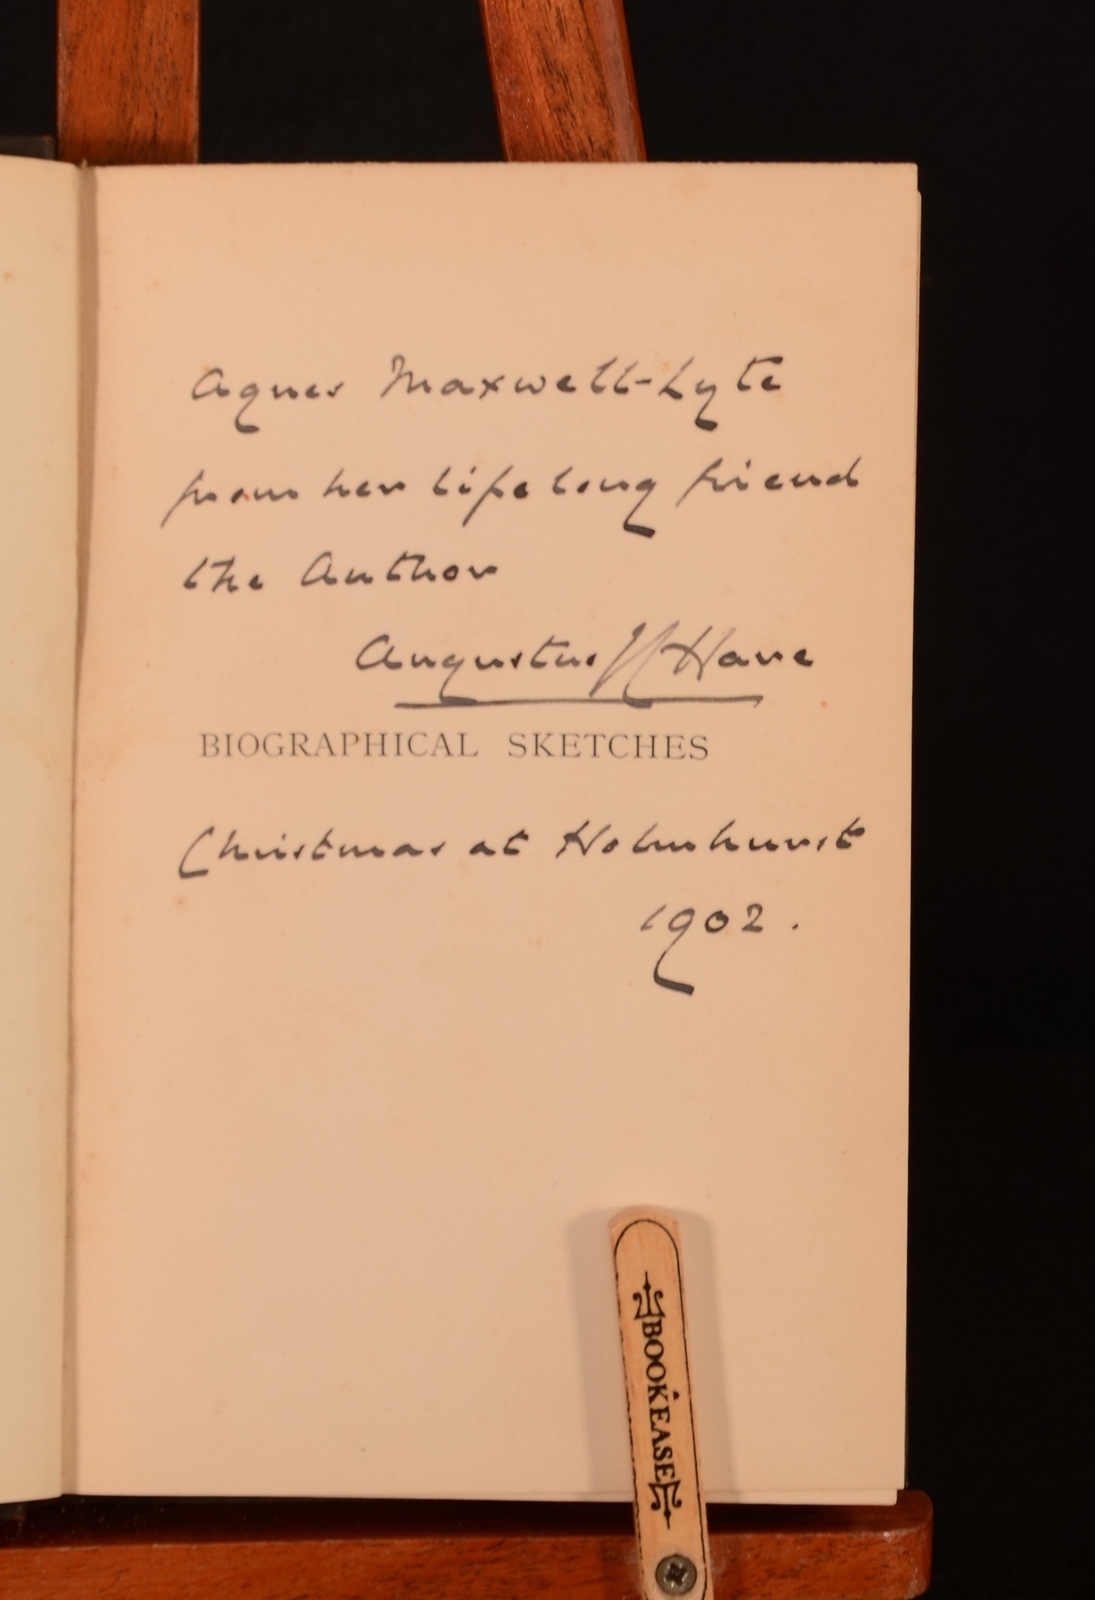 Agnes Maxwell-Lyte
from her life long friend
the Author
Augustus J C Hare
BIOGRAPHICAL SKETCHES
Christmas at Holmhurst
1902.
BOOKEASE